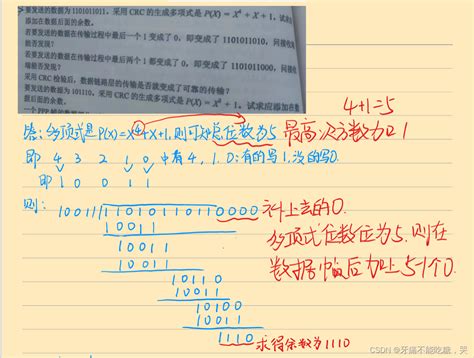 要发送的数据为1101011011。采用CRC的生成多项式是P(X)=X⁴+X+1，试求
添加在数据后面的余数。
若要发送的数据在传输过程中最后一个1变成了0，即变成了1101011010，问接收
能否发现？
若要发送的数据在传输过程中最后两个1都变成了0，即变成了1101011000，问接
端能否发现？
采用CRC检验后，数据链路层的传输是否就变成了可靠的传输？
要发送的数据为101110。采用CRC的生成多项式是P(X)=X³+1，试求应添加在数
据后面的余数。
4+1=5
答：多项式是P(X)=X⁴+X+1，则可知总位数为5 最高次方数加1
即 4 3 2 1 0 中有4,1,0：有的写1，没的写0.
即 1 0 0 1 1
则： 10011 11010110110000 补上去的0.
10011
10011
10011
10110
10011
10100
10011
1110 求得余数为1110
多项式位数位为5，则在
数据帧后加上5-1个0.
CSDN @牙痛不能吃糖，哭